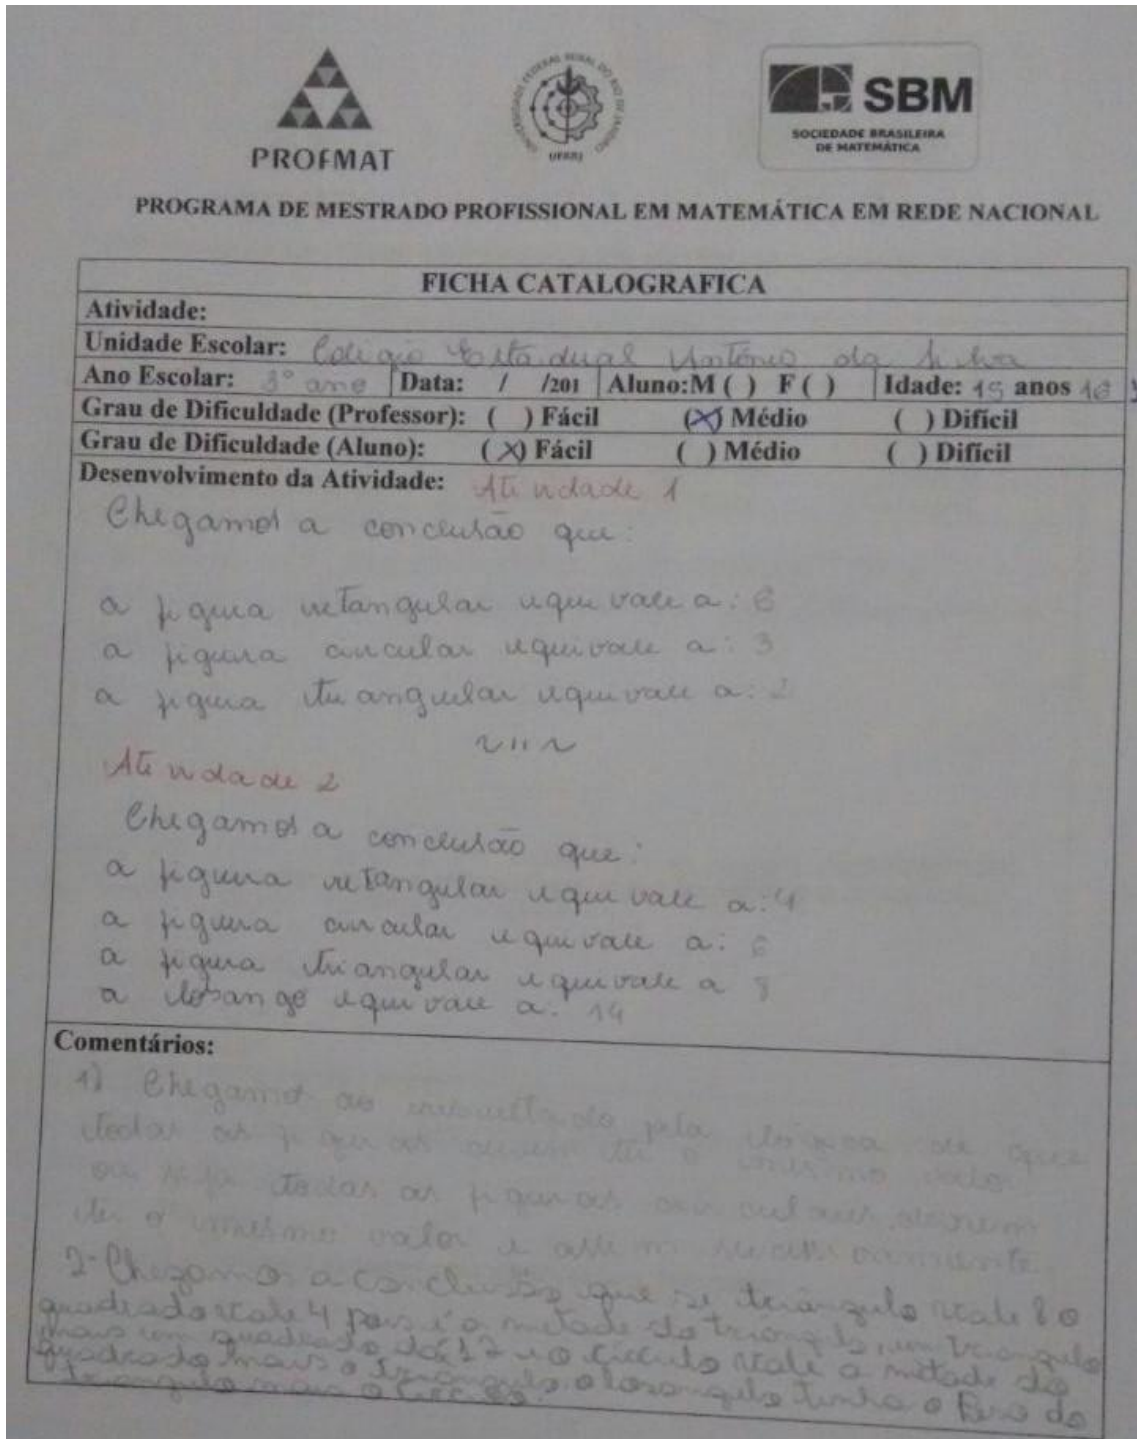 PROFMAT
UNIVERSIDADE FEDERAL RURAL DO RIO DE JANEIRO
UFRRJ
SBM
SOCIEDADE BRASILEIRA
DE MATEMÁTICA
PROGRAMA DE MESTRADO PROFISSIONAL EM MATEMÁTICA EM REDE NACIONAL
FICHA CATALOGRAFICA
Atividade:
Unidade Escolar: Colégio Estadual Antônio da Silva
Ano Escolar: 3º ano Data: / /201 Aluno:M ( ) F ( ) Idade: 15 anos 16
Grau de Dificuldade (Professor): ( ) Fácil (X) Médio ( ) Difícil
Grau de Dificuldade (Aluno): (X) Fácil ( ) Médio ( ) Difícil
Desenvolvimento da Atividade: Atividade 1
Chegamos a conclusão que:
a figura retangular equivale a: 6
a figura circular equivale a: 3
a figura triangular equivale a: 2
Atividade 2
Chegamos a conclusão que:
a figura retangular equivale a: 4
a figura circular equivale a: 6
a figura triangular equivale a 8
a losango equivale a: 14
Comentários:
1) Chegamos ao resultado pela lógica de que
todas as figuras devem ter o mesmo valor
ou seja todas as figuras circulares devem
ter o mesmo valor e assim sucessivamente.
2- Chegamos a conclusão que se triângulo vale 8 o
quadrado vale 4 pois é a metade do triangulo, um triangulo
mais um quadrado dá 12 e o circulo vale a metade do
quadrado mais o triangulo o losangulo tinha o peso do
triangulo mais o